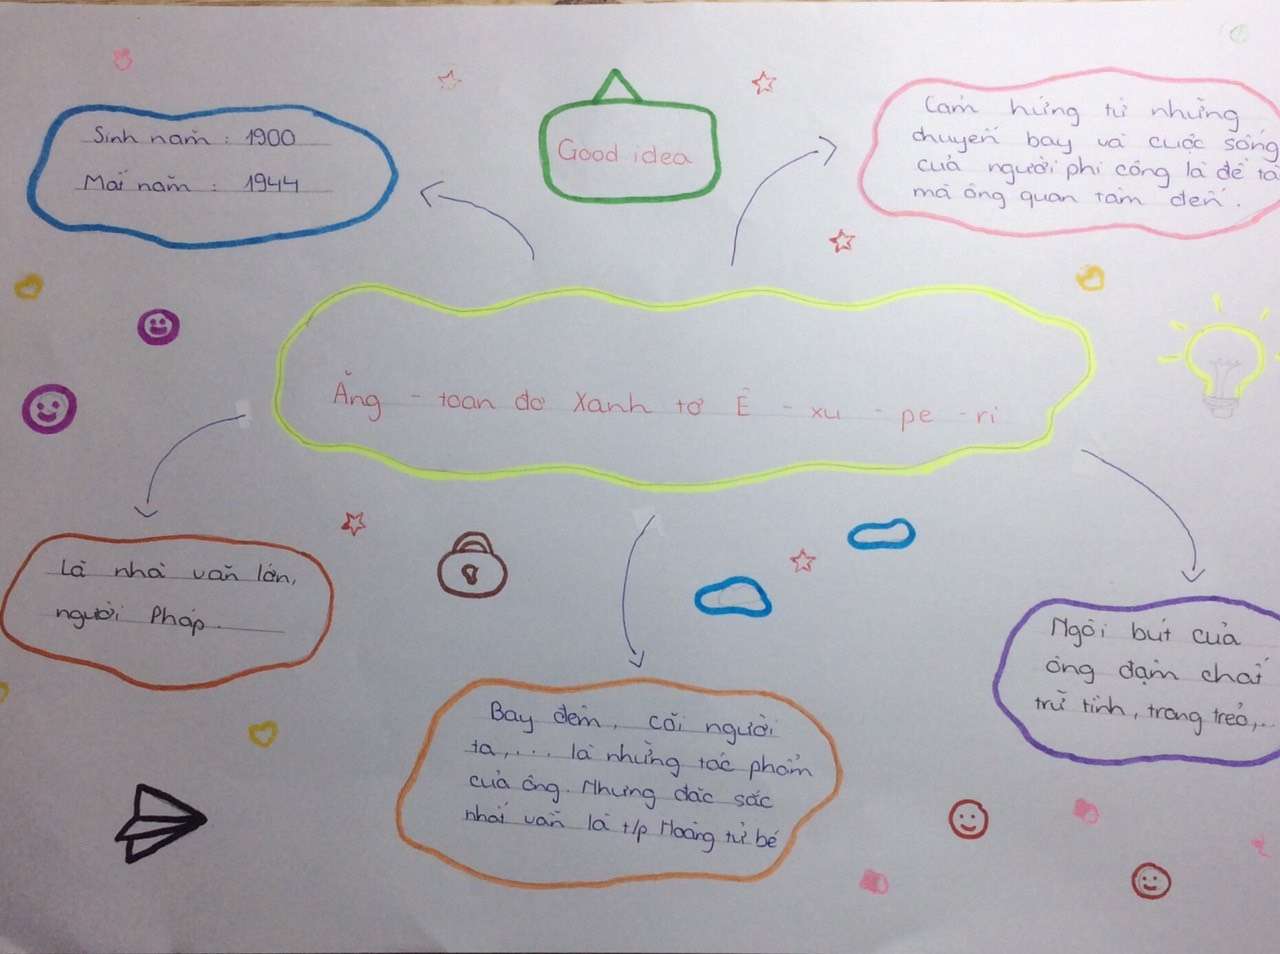 Good idea
Sinh năm : 1900
Mất năm : 1944
Cảm hứng từ những
chuyến bay và cuộc sống
của người phi công là đề tà
mà ông quan tâm đến.
Ăng - toan đơ Xanh tơ Ê - xu - pe - ri
Là nhà văn lớn,
người Pháp.
Bay đêm, cõi người
ta,... là những tác phẩm
của ông. Nhưng đặc sắc
nhất vẫn là t/p Hoàng tử bé
Ngòi bút của
ông đậm chất
trữ tình, trong trẻo,..